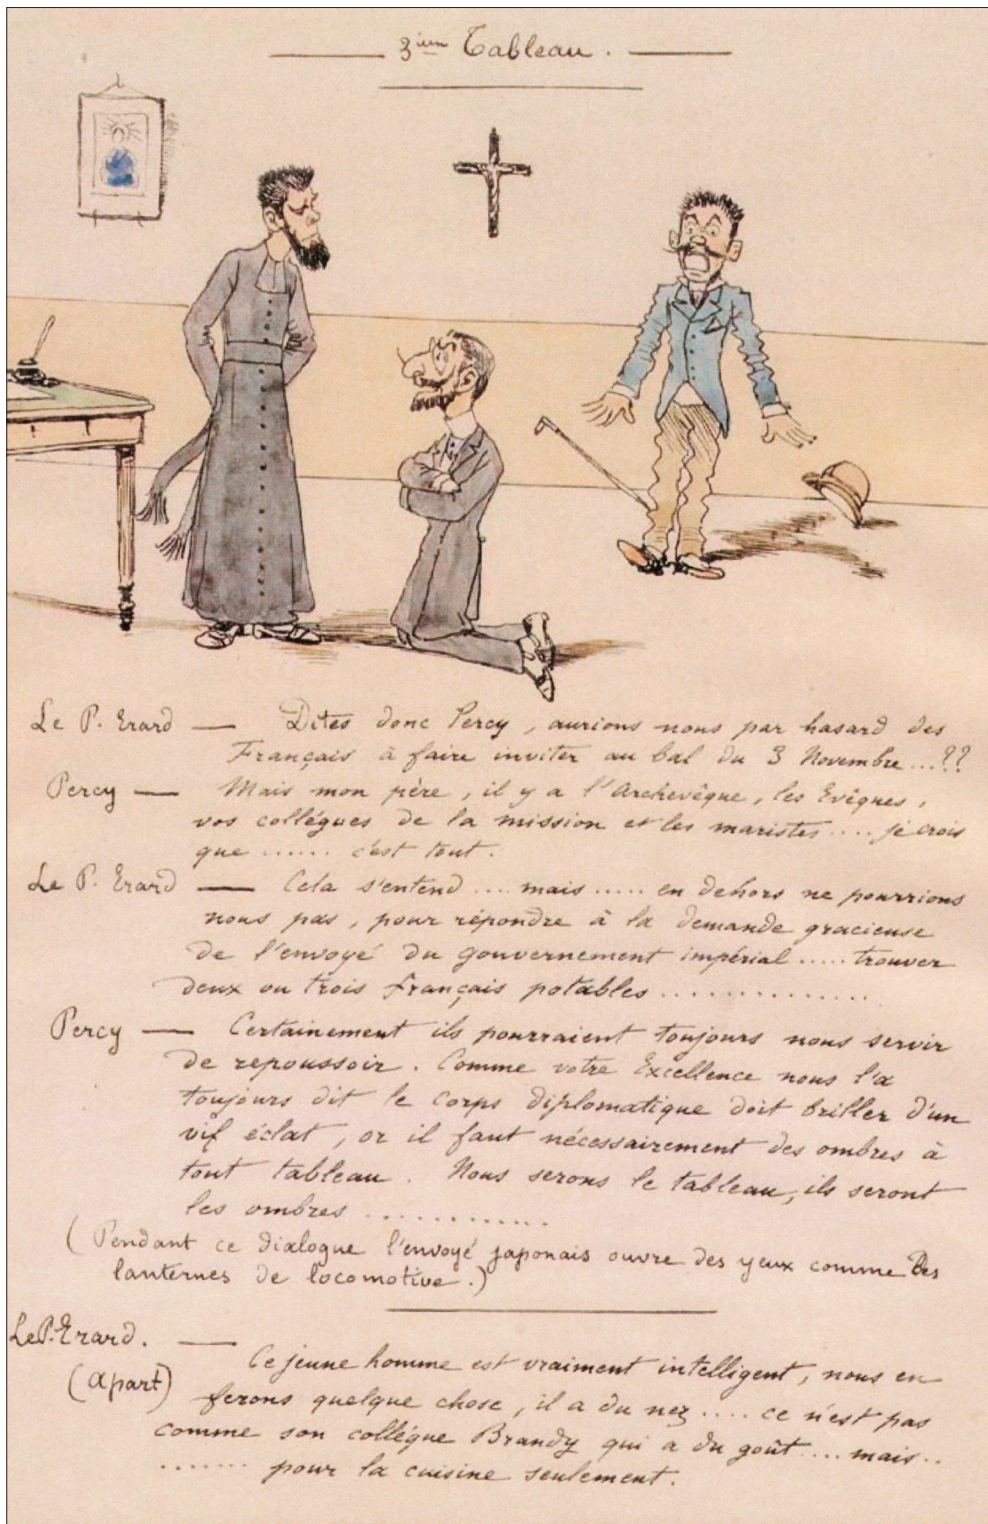 3ième Tableau.
Le P. Erard — Dites donc Percy, aurions nous par hasard des
Français à faire inviter au bal du 3 Novembre...??
Percy — Mais mon père, il y a l'Archevêque, les Evêques,
vos collégues de la mission et les maristes.... je crois
que ...... c'est tout.
Le P. Erard — Cela s'entend .... mais ..... en dehors ne pourrions
nous pas, pour répondre à la demande gracieuse
de l'envoyé du gouvernement impérial ..... trouver
deux ou trois français potables ...............
Percy — Certainement ils pourraient toujours nous servir
de repoussoir. Comme votre Excellence nous l'a
toujours dit le corps diplomatique doit briller d'un
vif éclat, or il faut nécessairement des ombres à
tout tableau. Nous serons le tableau, ils seront
les ombres ............
(Pendant ce dialogue l'envoyé japonais ouvre des yeux comme des
lanternes de locomotive.)
Le P. Erard. —
(apart) Ce jeune homme est vraiment intelligent, nous en
ferons quelque chose, il a du nez .... ce n'est pas
comme son collégue Brandy qui a du goût .... mais..
....... pour la cuisine seulement.